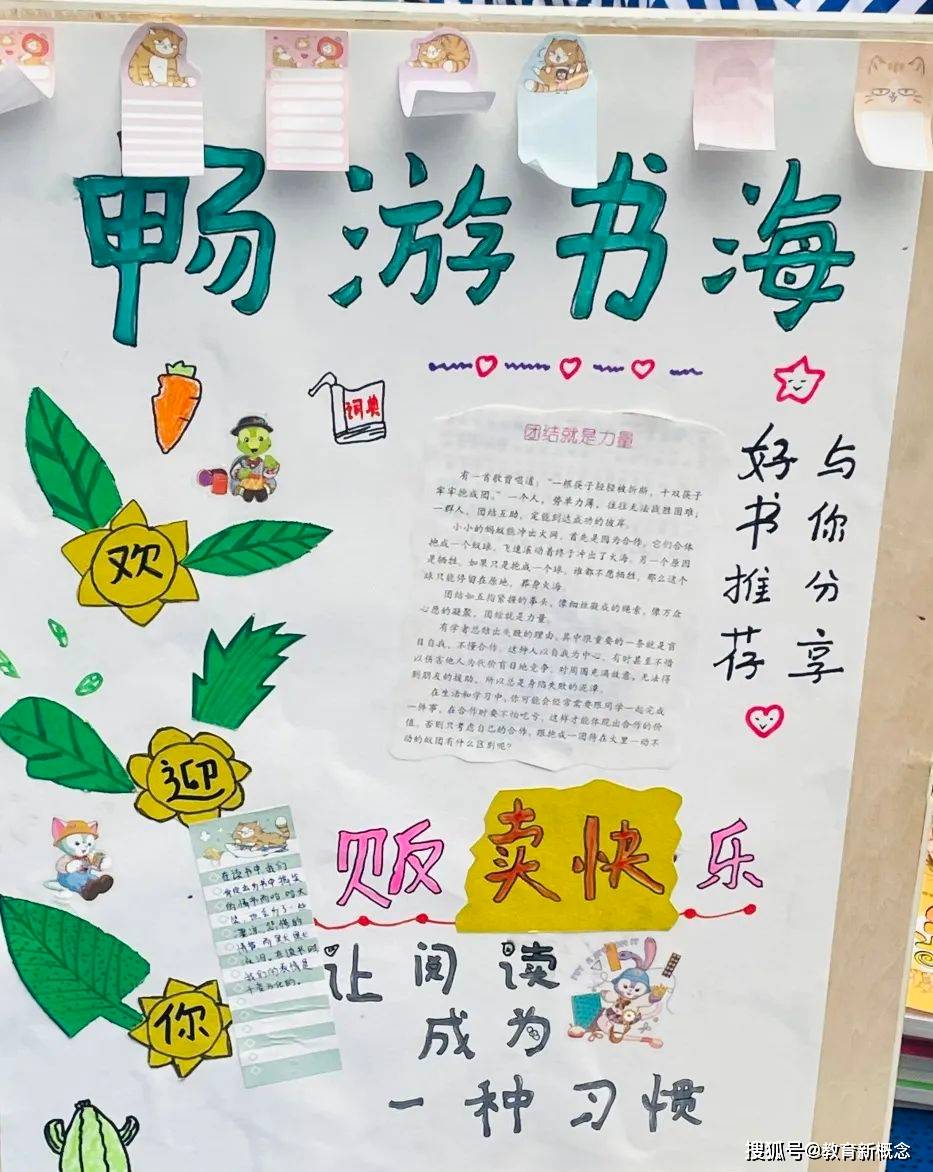 畅游书海
词典
团结就是力量
有一首歌曾唱道：“一根筷子轻轻被折断，十双筷子
牢牢抱成团。”一个人，势单力薄，往往无法战胜困难；
一群人，团结互助，定能到达成功的彼岸。
小小的蚂蚁能冲出火网，首先是因为合作。它们合体
抱成一个蚁球，飞速滚动着终于冲出了火海。另一个原因
是牺牲。如果只是抱成一个球，谁都不愿牺牲，那么这个
球只能停留在原地，葬身火海。
团结如五指紧握的拳头，像细丝凝成的绳索，像万众
心愿的凝聚。团结就是力量。
有学者总结出失败的理由，其中很重要的一条就是盲
目自我，不懂合作。这种人以自我为中心，有时甚至不惜
以伤害他人为代价盲目地竞争，对周围充满敌意，无法得
到朋友的援助，所以总是身陷失败的泥潭。
在生活和学习中，你可能会经常需要跟同学一起完成
一件事，在合作时要不怕吃亏，这样才能体现出合作的价
值。否则只考虑自己的合作，跟抱成一团待在火里一动不
动的蚁团有什么区别呢？
与你分享
好书推荐
欢
迎
你
贩卖快乐
在读书中，我们
让阅读
成为
一种习惯
搜狐号@教育新概念